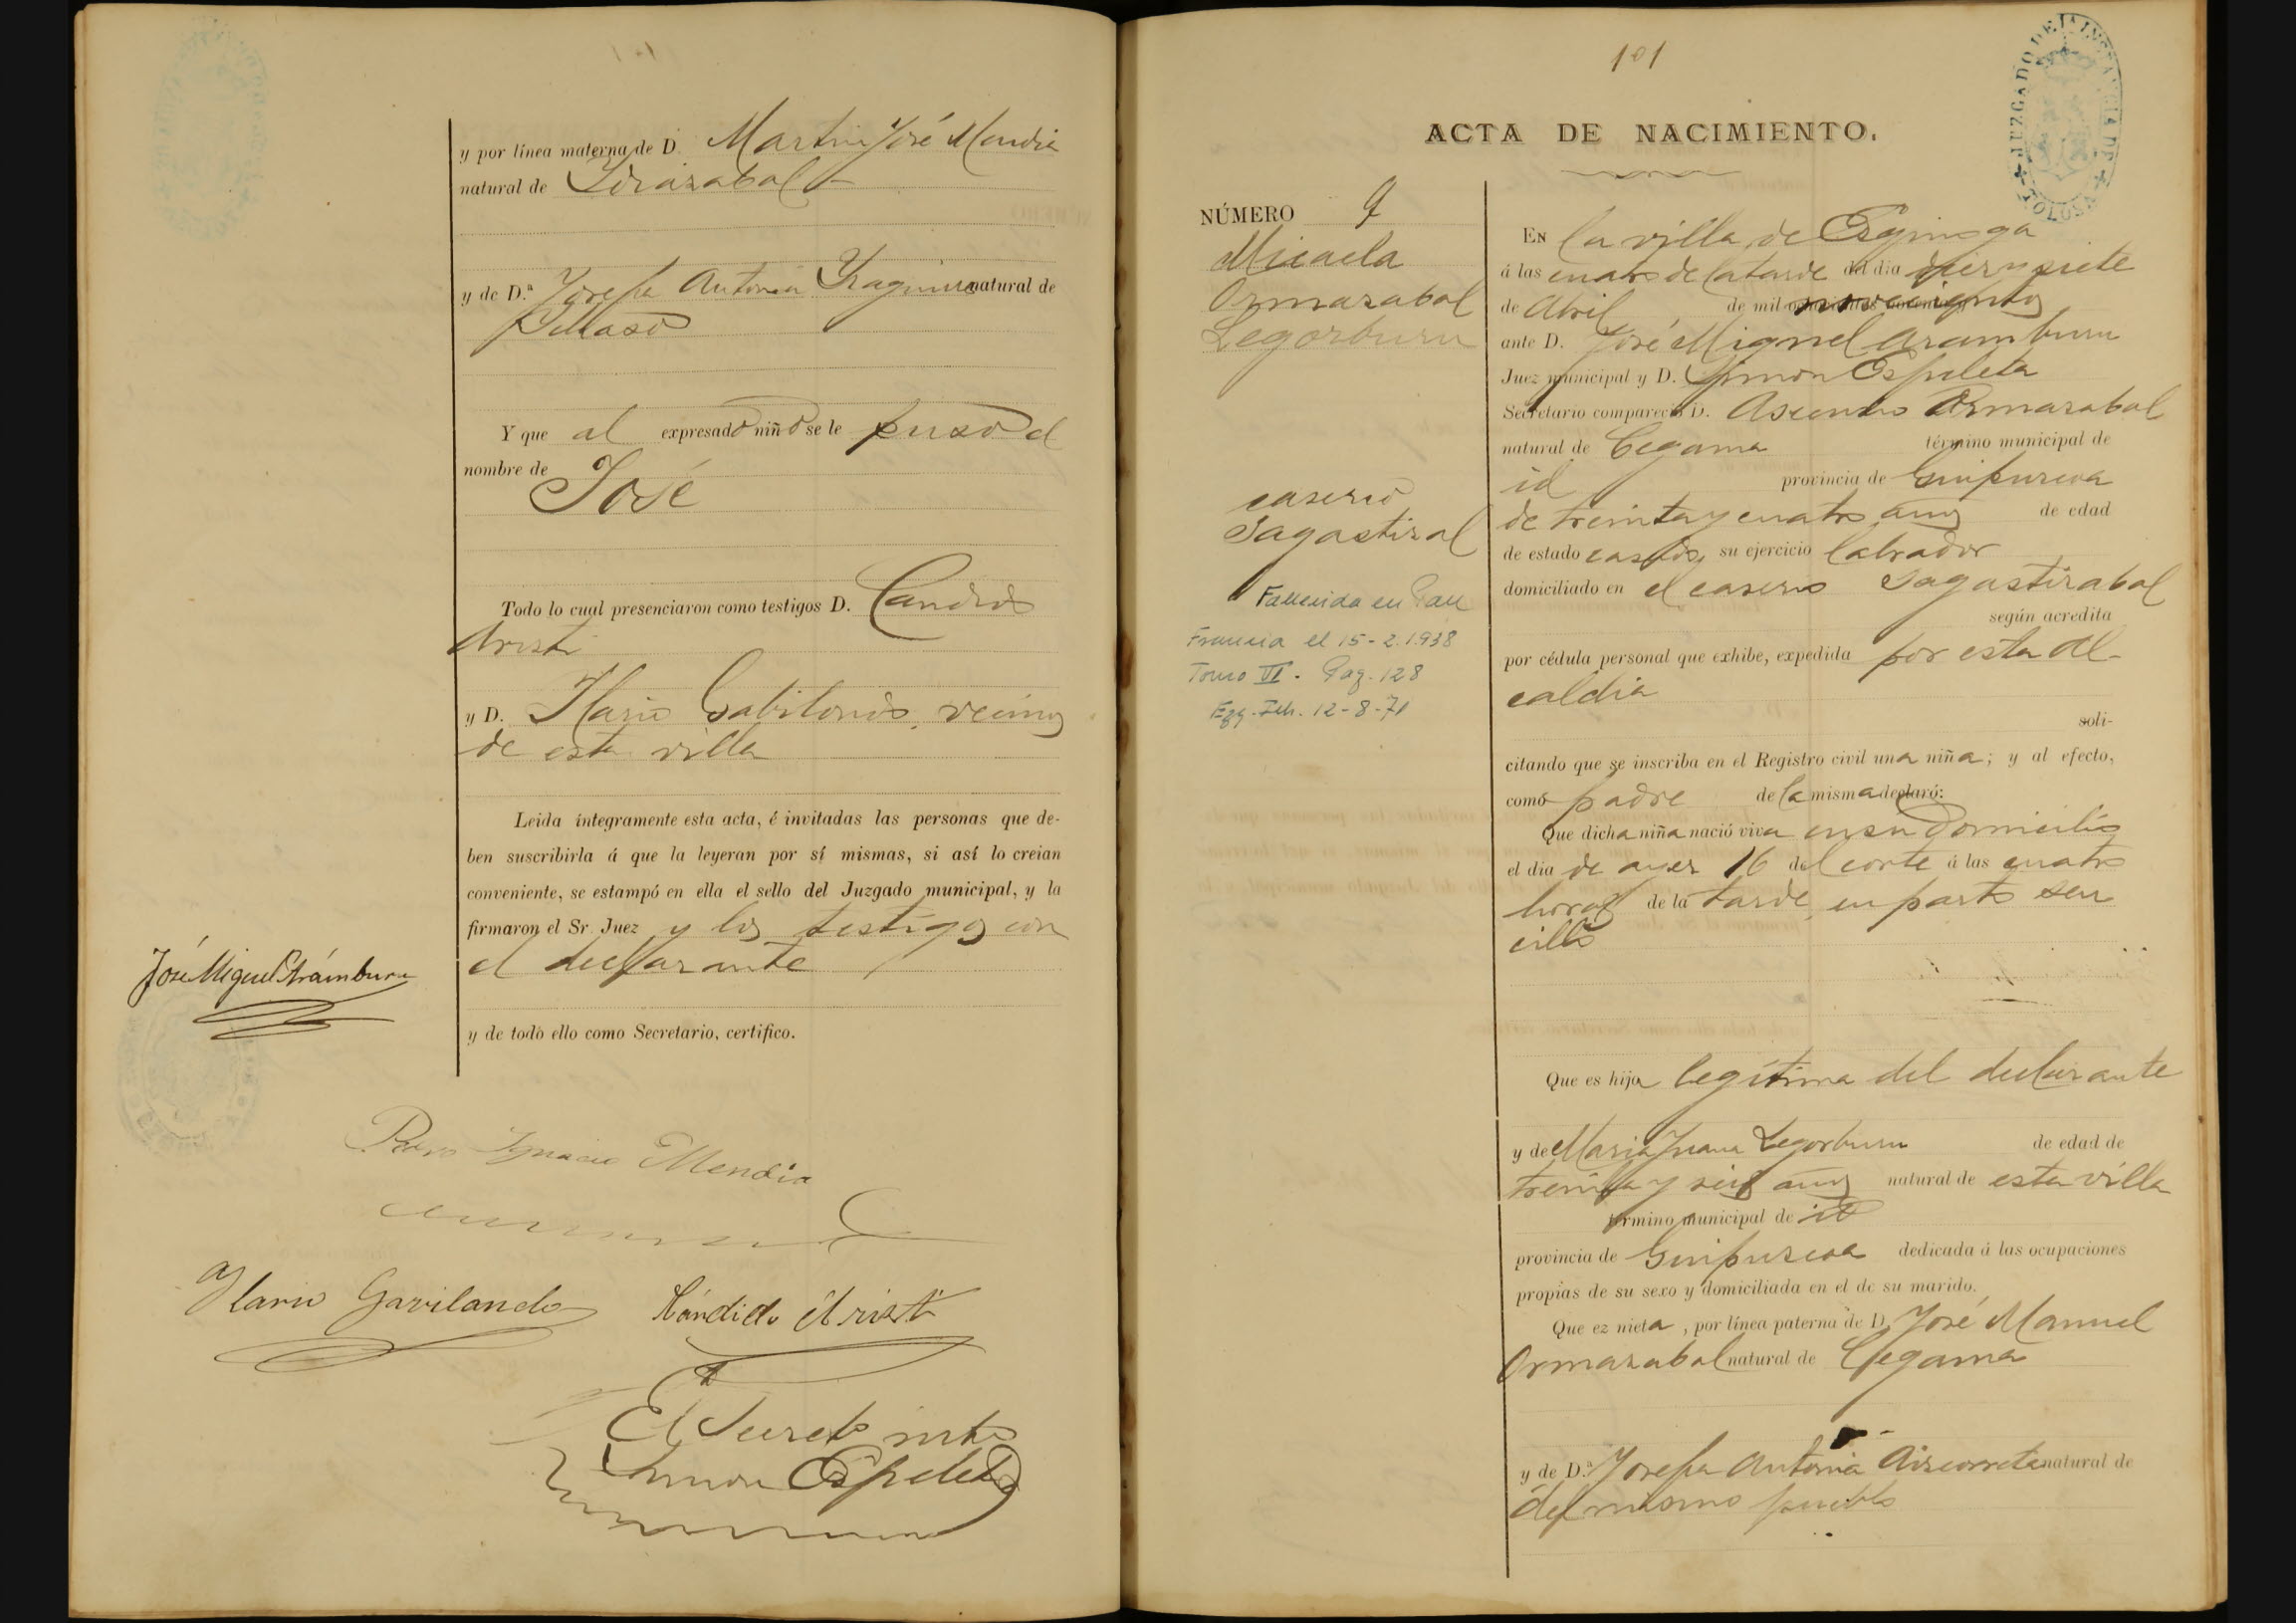 y por línea materna de D. Martin José Mendia
natural de Idiazabal
y de D.ª Josefa Antonia natural de
Y que al expresado niño se le puso el
nombre de José
Todo lo cual presenciaron como testigos D. Candido
Aristi
y D. Ilario Gabilondo, vecinos
de esta villa
Leida íntegramente esta acta, é invitadas las personas que de-
ben suscribirla á que la leyeran por sí mismas, si así lo creian
conveniente, se estampó en ella el sello del Juzgado municipal, y la
firmaron el Sr. Juez y los testigos con
el declarante
y de todo ello como Secretario, certifico.
José Miguel Arámburu
Pedro Ignacio Mendia
Ylario Gavilondo
Cándido Aristi
El Secreto into
Simon Espeleta
101
ACTA DE NACIMIENTO.
JUZGADO DE 1ª INSTANCIA DE TOLOSA
NÚMERO 9
Micaela
Ormazabal
Legorburu
caserio
Sagastizal
Fallecida en Pau
Francia el 15-2-1.938
Tomo VI. Pag. 128
12-8-71
EN la villa de Ezquioga
á las cuatro de la tarde del dia diez y siete
de Abril de mil novecientos
ante D. José Miguel Aramburu
Juez municipal y D. Simon Espeleta
Secretario compareció D. Ascencio Ormazabal
natural de Cegama término municipal de
id provincia de Guipuzcoa
de treinta y cuatro años de edad
de estado casado, su ejercicio labrador
domiciliado en el caserio Sagastizabal
según acredita
por cédula personal que exhibe, expedida por esta Al-
caldia
soli-
citando que se inscriba en el Registro civil una niña; y al efecto,
como padre de la misma declaró:
Que dicha niña nació viva en su domicilio
el dia de ayer 16 del corte á las cuatro
horas de la tarde, en parto sen
cillo
Que es hija legítima del declarante
y de Maria Juana Legorburu de edad de
treinta y seis años natural de esta villa
término municipal de id
provincia de Guipuzcoa dedicada á las ocupaciones
propias de su sexo y domiciliada en el de su marido.
Que ez nieta, por línea paterna de D. José Manuel
Ormazabal natural de Cegama
y de D.ª Josefa Antonia Aizcorreta natural de
del mismo pueblo